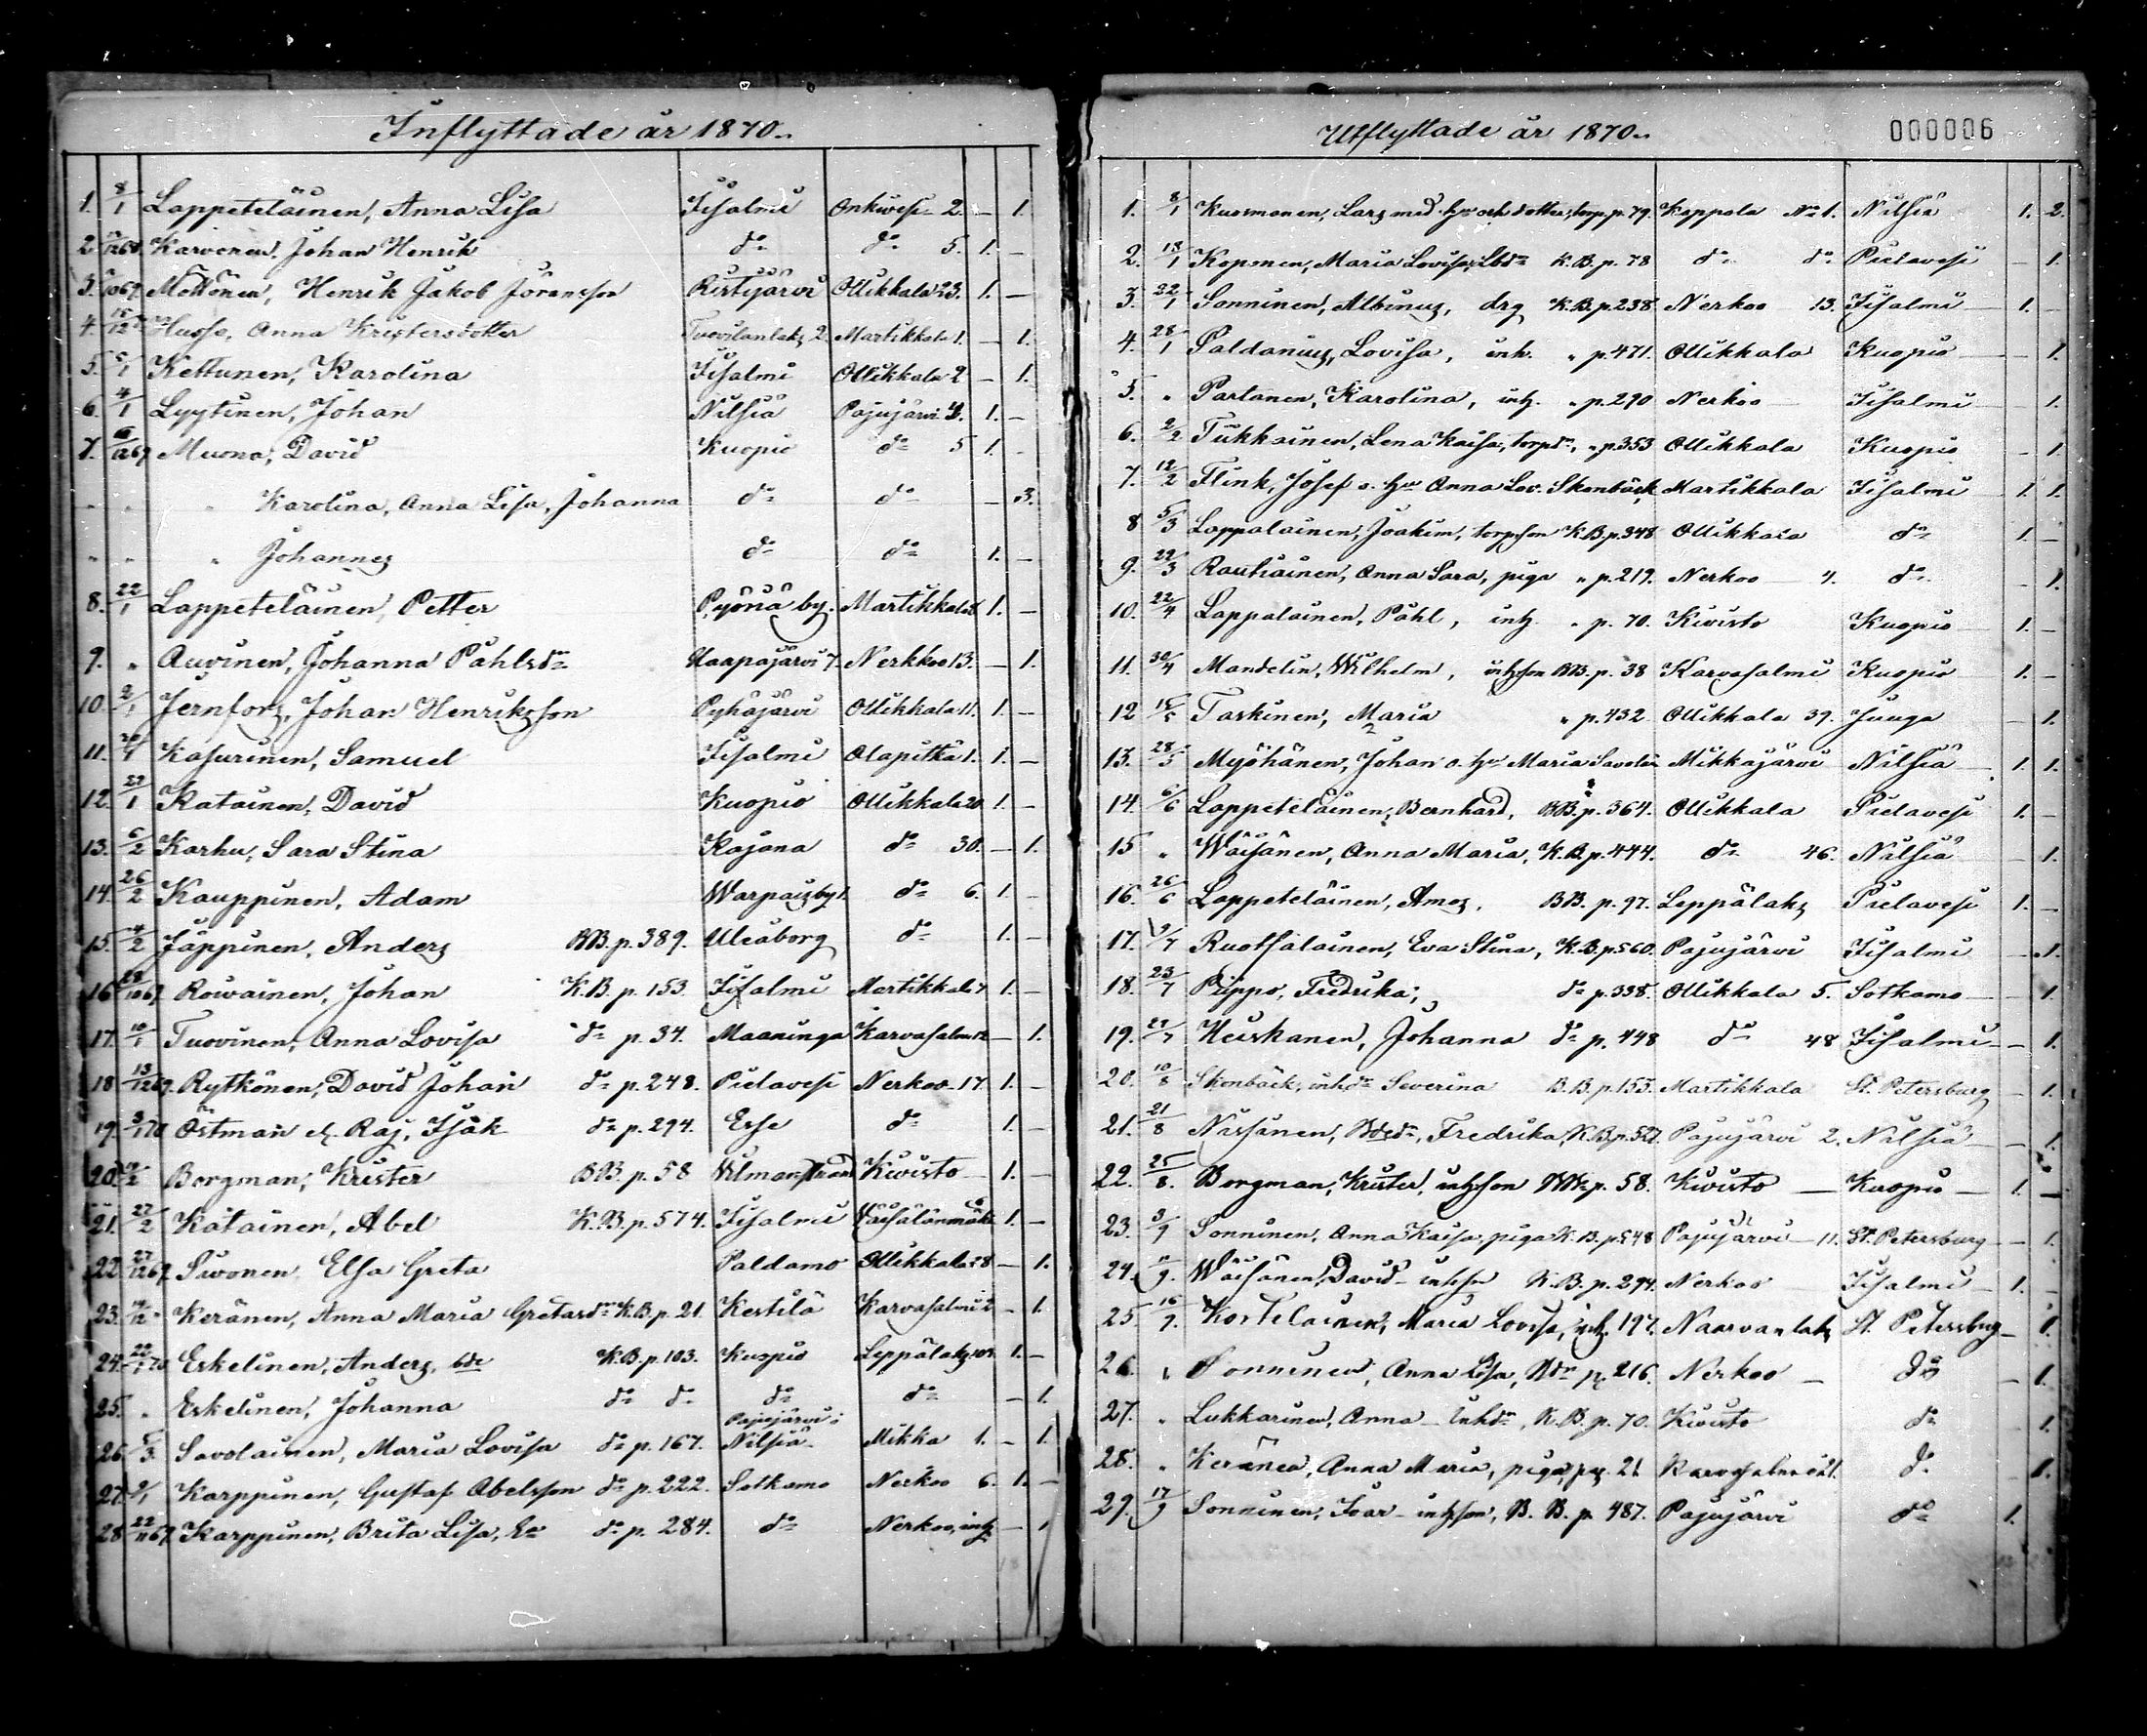 Inflyttade år 1870.
1. 8/1 Lappeteläinen, Anna Lisa Iisalmi Onkivesi 2. – 1.
2. Karvonen, Johan Henrik do do 5. 1. –
3. Möttönen, Henrik Jakob Göransson Ristijärvi Ollikkala 23. 1. –
4. Husso, Anna Kristersdotter Tuovilanlaks 2. Martikkala 1. – 1.
5. Kettunen, Karolina Iisalmi Ollikkala 2 – 1.
6. 4/1 Lyytinen, Johan Nilsiä Pajujärvi 1. –
7. Muona, David Kuopio do 5 1. –
" " " Karolina, Anna Lisa, Johanna do do – 3.
" " " Johannes do do 1. –
8. 22/1 Lappeteläinen, Petter Pyönä by. Martikkala 1. –
9. " Auvinen, Johanna Påhlsdr Haapajärvi 7. Nerkkoo 13. – 1.
10. 2/1 Jernfors, Johan Henriksson Pyhäjärvi Ollikkala 11. 1. –
11. Kasurinen, Samuel Iisalmi Olapitkä 1. 1. –
12. 22/1 Ratainen, David Kuopio Ollikkala 20. 1. –
13. 6/2 Karhu, Sara Stina Kajana do 30. – 1.
14. 26/2 Kauppinen, Adam Warpaisby 1. do 6. 1. –
15. 4/2 Jäppinen, Anders BB. p. 389. Uleåborg do 1. –
16. Roivainen, Johan K.B. p. 153. Iisalmi Martikkala 7 1. –
17. 10/1 Tuovinen, Anna Lovisa do p. 34. Maaninga Karvasalmi – 1.
18. 13/12 69. Rytkönen, David Johan do p. 248. Pielavesi Nerkoo 17. 1. –
19. Östman Isak do p. 294. Esse do 1. –
20. Borgman, Krister BB. p. 58 Wilmanstrand Kivisto 1. –
21. 27/2 Kätäinen, Abel K.B. p. 574. Iisalmi Väisälänmäki 1. –
22. 27/12 69. Sivonen, Elsa Greta Paldamo Ollikkala 28 – 1.
23. Keränen, Anna Maria Gretasdr K.B. p. 21. Kestilä Karvasalmi – 1.
24. Eskelinen, Anders, bde K.B. p. 103. Kuopio Leppälaks 1. –
25. " Eskelinen, Johanna do do do do – 1.
26. 5/3 Savolainen, Maria Lovisa do p. 167. Pajujärvi; Nilsiä Mikka 1. – 1.
27. Karppinen, Gustaf Abelsson do p. 222. Sotkamo Nerkoo 6. 1. –
28. 22/11 69. Karppinen, Brita Lisa, Ea do p. 284. do Nerkoo, inh – 1
Utflyttade år 1870.
000006
1. 8/1 Kuosmanen, Lars med hu och dotter, torp. p. 79. Koppola No 1. Nilsiä 1. 2.
2. 18/1 Koponen, Maria Lovisa, Lbdr K.B. p. 78 do do Pielavesi – 1.
3. 22/1 Sonninen, Albinus, drg K.B. p. 238. Nerkoo 13. Iisalmi 1. –
4. 28/1 Paldanius, Lovisa, inh. " p. 471. Ollikkala Kuopio – 1.
5. " Partanen, Karolina, inh. " p. 290 Nerkoo Iisalmi – 1.
6. 2/2 Tikkainen, Lena Kaisa, torpdr, " p. 353 Ollikkala Kuopio – 1.
7. 12/2 Flink, Josef o. hu Anna Lov. Skonbäck Martikkala Iisalmi 1. 1.
8 5/3 Lappalainen, Joakim, torpson K.B. p. 348 Ollikkala do 1. –
9. 22/3 Rautiainen, Anna Sara, piga " p. 219. Nerkoo 4. do – 1.
10. 22/4 Lappalainen, Påhl, inh. " p. 70. Kivisto Kuopio 1. –
11. 30/4 Mandelin, Wilhelm, inhson BB. p. 38 Karvasalmi Kuopio 1. –
12 15/5 Taskinen, Maria " p. 432. Ollikkala 39. Juuga – 1.
13. 28/5 Myöhänen, Johan o. hu Maria Savolain Mikkajärvi Nilsiä 1. 1.
14. 6/6 Lappeteläinen, Bernhard, BB. p. 364. Ollikkala Pielavesi 1. –
15 " Wäisänen, Anna Maria, K.B. p. 444. do 46. Nilsiä – 1.
16. 26/6 Lappeteläinen, Amos, BB. p. 97. Leppälaks Pielavesi 1. –
17. 9/7 Ruotsalainen, Eva Stina, K.B. p. 560. Pajujärvi Iisalmi – 1.
18. 23/7 Piippo, Fredrika; do p. 338. Ollikkala 5. Sotkamo – 1.
19. Heiskanen, Johanna do p. 448 do 48 Iisalmi – 1.
20. 10/8 Skonbäck, inhdr Severina B.B. p. 155. Martikkala St. Petersburg – 1.
21. 21/8 Nissinen, Bdedr, Fredrika, K.B. p. 527. Pajujärvi 2. Nilsiä – 1.
22. 25/8. Borgman, Krister, inhson BB. p. 58. Kivisto – Kuopio 1. –
23. 3/9 Sonninen, Anna Kaisa, piga K.B. p. 548 Pajujärvi 11. St. Petersburg – 1.
24. Wäisänen, David inhsn K.B. p. 294. Nerkoo Iisalmi 1. –
25. 16/9. Kortelainen, Maria Lovisa, inh. 197. Naarvanlaks St. Petersburg – 1.
26. " Sonninen, Anna Lisa, Bdr p. 216. Nerkoo – do – 1.
27. " Lukkarinen, Anna inhdr, K.B. p. 70. Kivisto do 1.
28. " Keränen, Anna Maria, piga, pg. 21 Karvasalmi 21. do – 1.
29. 17/9 Sonninen, Ivar inhson, B.B. p. 487. Pajujärvi do 1.